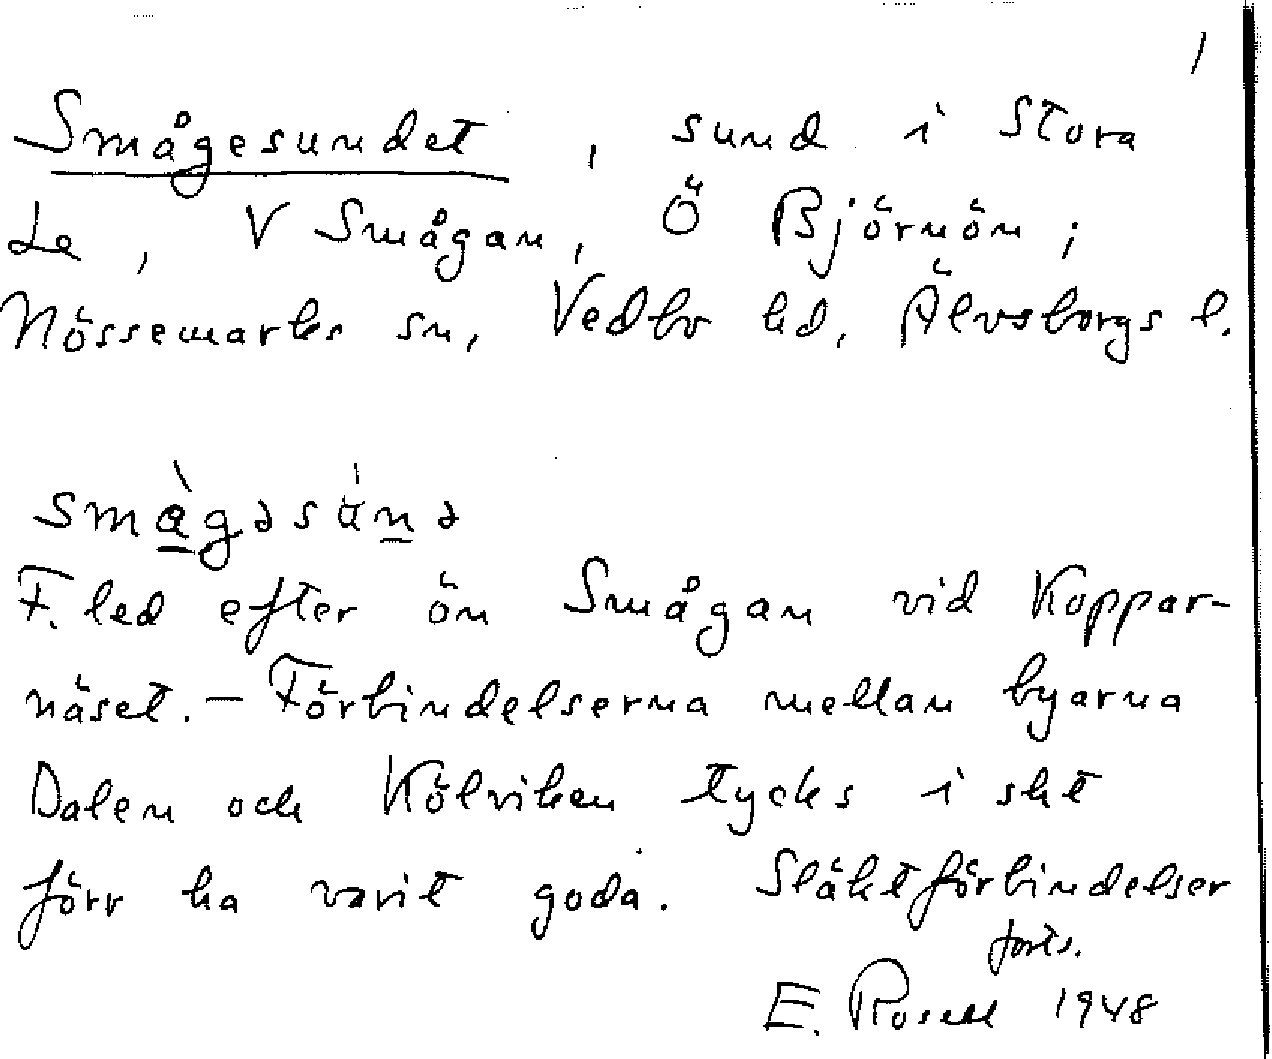 1
Smågesundet, sund i Stora
Le, V Smågan, Ö Björnön;
Nössemarks sn, Vedbo hd, Älvsborgs l.
F. led efter ön Smågan vid Koppar-
näset. — Förbindelserna mellan byarna
Dalen och Kölviken tycks i sht
förr ha varit goda. Släktförbindelser
forts.
E. Rosell 1948